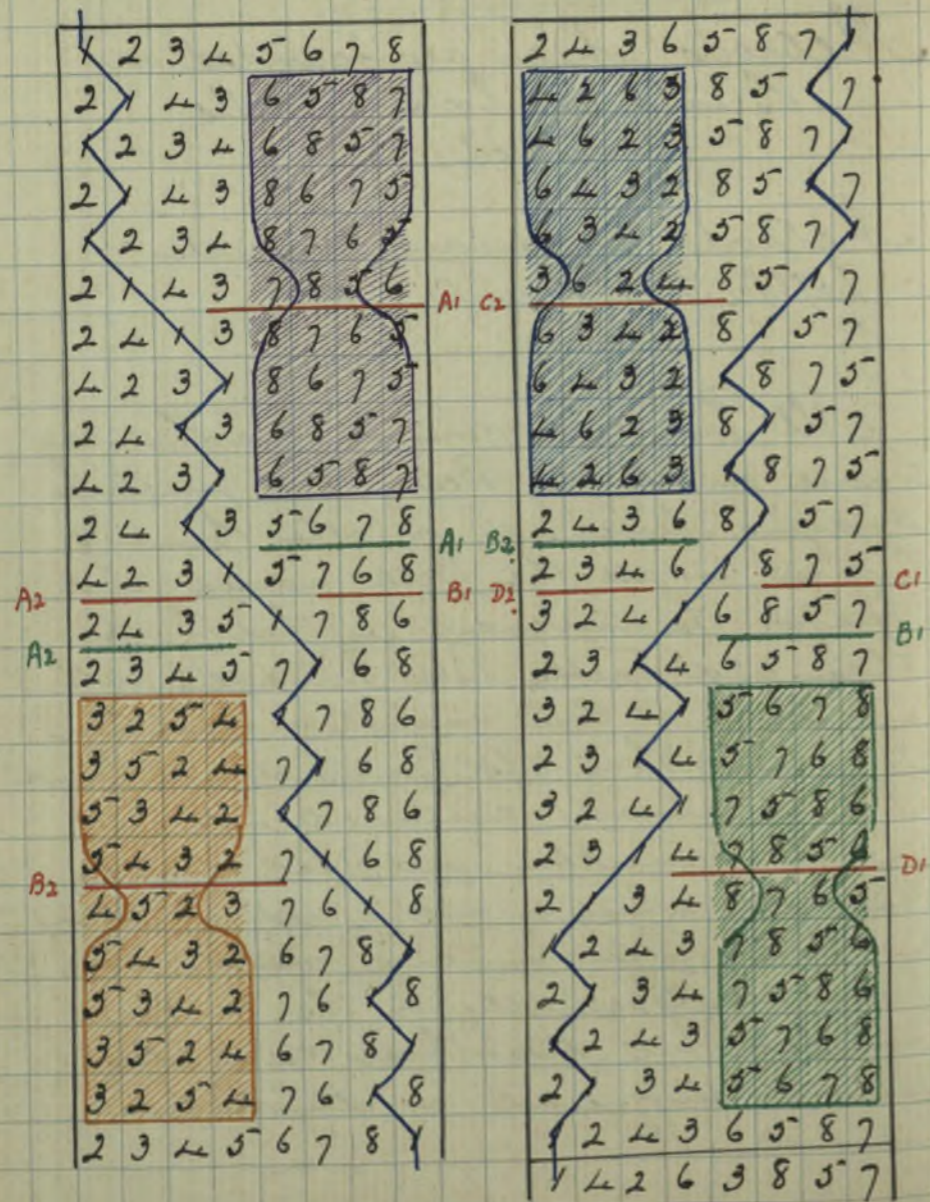 1 2 3 4 5 6 7 8
2 1 4 3 6 5 8 7
1 2 3 4 6 8 5 7
2 1 4 3 8 6 7 5
1 2 3 4 8 7 6 5
2 1 4 3 7 8 5 6
A1
2 4 1 3 8 7 6 5
4 2 3 1 8 6 7 5
2 4 1 3 6 8 5 7
4 2 3 1 6 5 8 7
2 4 1 3 5 6 7 8
A1
4 2 3 1 5 7 6 8
A2 B1
2 4 3 5 1 7 8 6
A2
2 3 4 5 7 1 6 8
3 2 5 4 1 7 8 6
3 5 2 4 7 1 6 8
5 3 4 2 1 7 8 6
5 4 3 2 7 1 6 8
B2
4 5 2 3 7 6 1 8
5 4 3 2 6 7 8 1
5 3 4 2 7 6 1 8
3 5 2 4 6 7 8 1
3 2 5 4 7 6 1 8
2 3 4 5 6 7 8 1
2 4 3 6 5 8 7 1
4 2 6 3 8 5 1 7
4 6 2 3 5 8 7 1
6 4 3 2 8 5 1 7
6 3 4 2 5 8 7 1
3 6 2 4 8 5 1 7
C2
6 3 4 2 8 1 5 7
6 4 3 2 1 8 7 5
4 6 2 3 8 1 5 7
4 2 6 3 1 8 7 5
2 4 3 6 8 1 5 7
B2
2 3 4 6 1 8 7 5
D2 C1
3 2 4 1 6 8 5 7
B1
2 3 1 4 6 5 8 7
3 2 4 1 5 6 7 8
2 3 1 4 5 7 6 8
3 2 4 1 7 5 8 6
2 3 1 4 7 8 5 6
D1
2 1 3 4 8 7 6 5
1 2 4 3 7 8 5 6
2 1 3 4 7 5 8 6
1 2 4 3 5 7 6 8
2 1 3 4 5 6 7 8
1 2 4 3 6 5 8 7
1 4 2 6 3 8 5 7